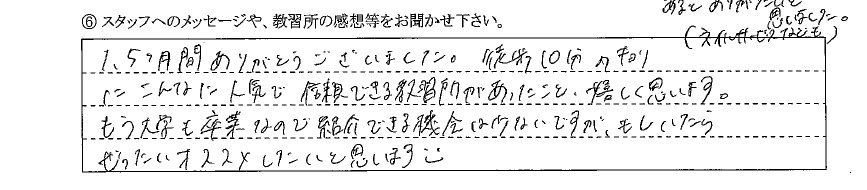 あると ありがたいと
思いました。
⑥ スタッフへのメッセージや、教習所の感想等をお聞かせ下さい。
(ネイルサービスなども)
1.5ヶ月間ありがとうございました。 徒歩10分のキョリ
にこんなに人気で信頼できる教習所があったこと、嬉しく思います。
もう大学も卒業なので紹介できる機会は少ないですが、もしいたら
ぜったいオススメしたいと思います